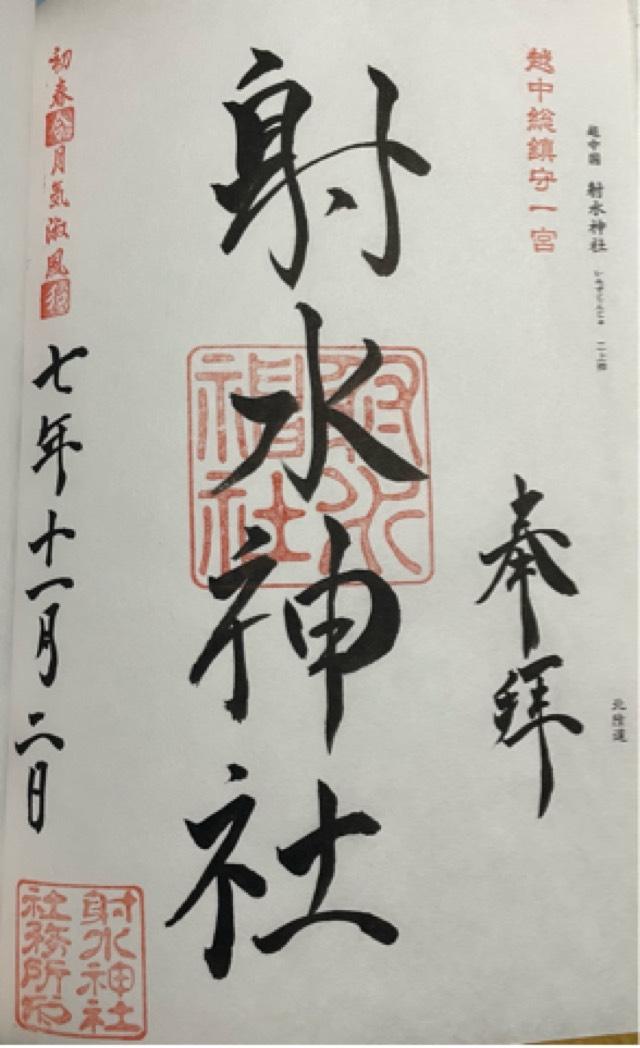 越中國 射水神社 いみずじんじゃ 二上郷
北陸道
越中総鎮守一宮
奉拝
射水神社
射水神社
初春令月気淑風和
七年十一月二日
射水神社
社務所印